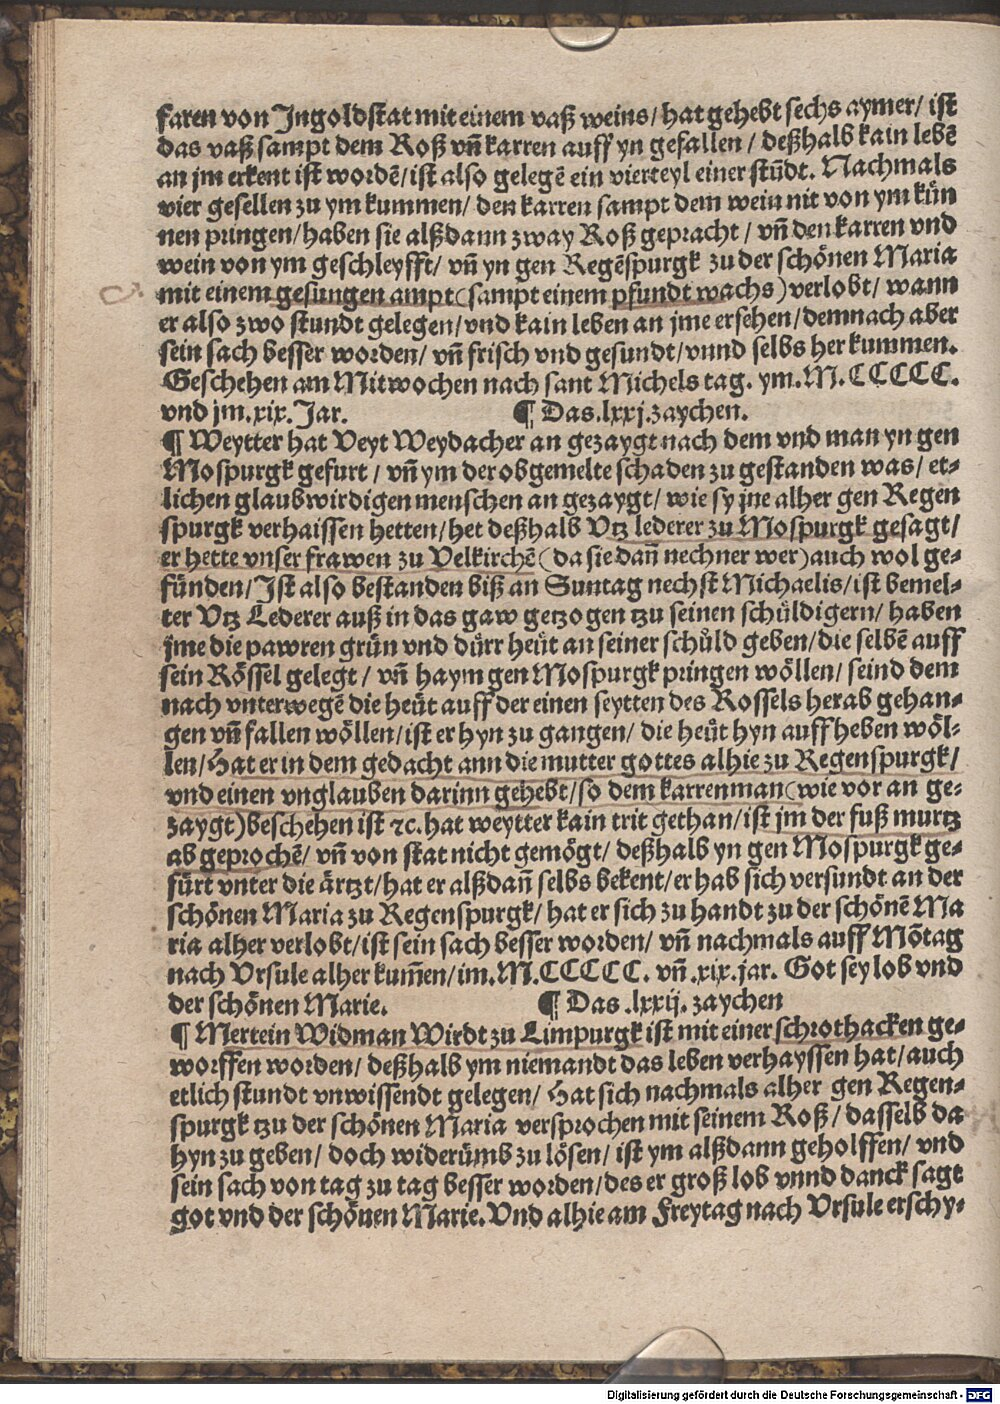 faren von Ingoldstat mit einem vaß weins/ hat gehebt sechs aymer/ ist
das vaß sampt dem Roß vñ karren auff yn gefallen / deßhalb kain lebẽ
an jm erkent ist wordẽ/ ist also gelegẽ ein vierteyl einer stũdt. Nachmals
vier gesellen zu ym kummen/ den karren sampt dem wein nit von ym kün
nen pringen/ haben sie alßdann zway Roß gepracht / vñ den karren vnd
wein von ym geschleyfft/ vñ yn gen Regẽspurgk zu der schönen Maria
mit einem gesungen ampt (sampt einem pfundt wachs) verlobt/ wann
er also zwo stundt gelegen/ vnd kain leben an jme ersehen/ demnach aber
sein sach besser worden/ vñ frisch vnd gesundt/ vnnd selbs her kummen.
Geschehen am Mitwochen nach sant Michels tag. ym. M. CCCCC.
vnd jm. xix. Jar. ¶ Das .lxxj. zaychen.
¶ Weytter hat Veyt Weydacher an gezaygt nach dem vnd man yn gen
Mospurgk gefurt / vñ ym der obgemelte schaden zu gestanden was/ et⸗
lichen glaubwirdigen menschen an gezaygt/ wie sy jne alher gen Regen
spurgk verhaissen hetten/ het deßhalb Vtz lederer zu Mospurgk gesagt/
er hette vnser frawen zu Velkirchẽ (da sie dañ nechner wer) auch wol ge⸗
fünden/ Ist also bestanden biß an Suntag nechst Michaelis/ ist bemel⸗
ter Vtz Lederer auß in das gaw getzogen tzu seinen schüldigern/ haben
jme die pawren grün vnd dürr heüt an seiner schuͤld geben/ die selbẽ auff
sein Rössel gelegt / vñ haym gen Mospurgk pringen wöllen/ seind dem
nach vnterwegẽ die heüt auff der einen seytten des Rossels herab gehan⸗
gen vñ fallen wöllen/ ist er hyn zu gangen/ die heüt hyn auff heben wöl⸗
len/ Hat er in dem gedacht ann die mutter gottes alhie zu Regenspurgk/
vnd einen vnglauben darinn gehebt/ so dem karrenman (wie vor an ge⸗
zaygt) beschehen ist ꝛc. hat weytter kain trit gethan/ ist jm der fuß murtz
ab geprochẽ/ vñ von stat nicht gemögt/ deßhalb yn gen Mospurgk ge⸗
fürt vnter die ärtzt/ hat er alßdañ selbs bekent/ er hab sich versundt an der
schönen Maria zu Regenspurgk/ hat er sich zu handt zu der schönẽ Ma
ria alher verlobt/ ist sein sach besser worden/ vñ nachmals auff Mõtag
nach Vrsule alher kum̃en/ im. M. CCCCC. vñ .xix. jar. Got sey lob vnd
der schönen Marie. ¶ Das .lxxij. zaychen
¶ Mertein Widman Wirdt zu Limpurgk ist mit einer schrothacken ge⸗
worffen worden/ deßhalb ym niemandt das leben verhayssen hat/ auch
etlich stundt vnwissendt gelegen/ Hat sich nachmals alher gen Regen⸗
spurgk tzu der schönen Maria versprochen mit seinem Roß/ dasselb da
hyn zu geben/ doch widerümb zu lösen/ ist ym alßdann geholffen/ vnd
sein sach von tag zu tag besser worden/ des er groß lob vnnd danck sagt
got vnd der schönen Marie. Vnd alhie am Freytag nach Vrsule erschy⸗
Digitalisierung gefördert durch die Deutsche Forschungsgemeinschaft - DFG